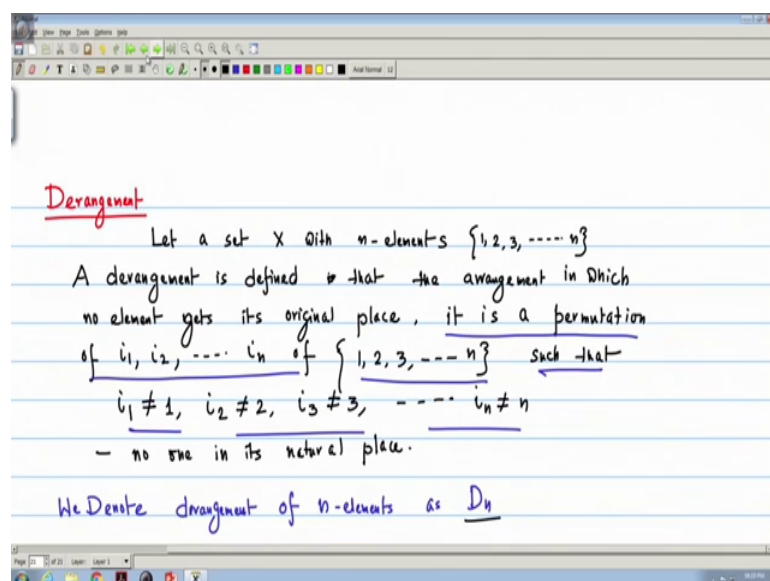 View Page Tools Options Help
Arial Normal 12
Derangement
Let a set X with n-elements {1, 2, 3, ----- n}
A derangement is defined that the arrangement in which
no element gets its original place, it is a permutation
of i₁, i₂, ---- iₙ of {1, 2, 3, --- n} such that
i₁ ≠ 1, i₂ ≠ 2, i₃ ≠ 3, ----- iₙ ≠ n
— no one in its natural place.
We Denote derangement of n-elements as Dₙ
Page 21 of 21 Layer: Layer 1